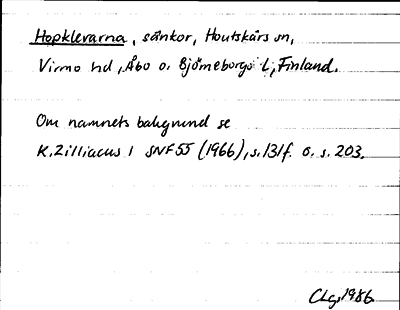 Hopklevarna, sänkor, Houtskärs sn,
Virmo hd, Åbo o. Björneborgs l, Finland.
Om namnets bakgrund se
K. Zilliacus i SNF 55 (1966), s. 131f. o. s. 203.
CLg, 1986